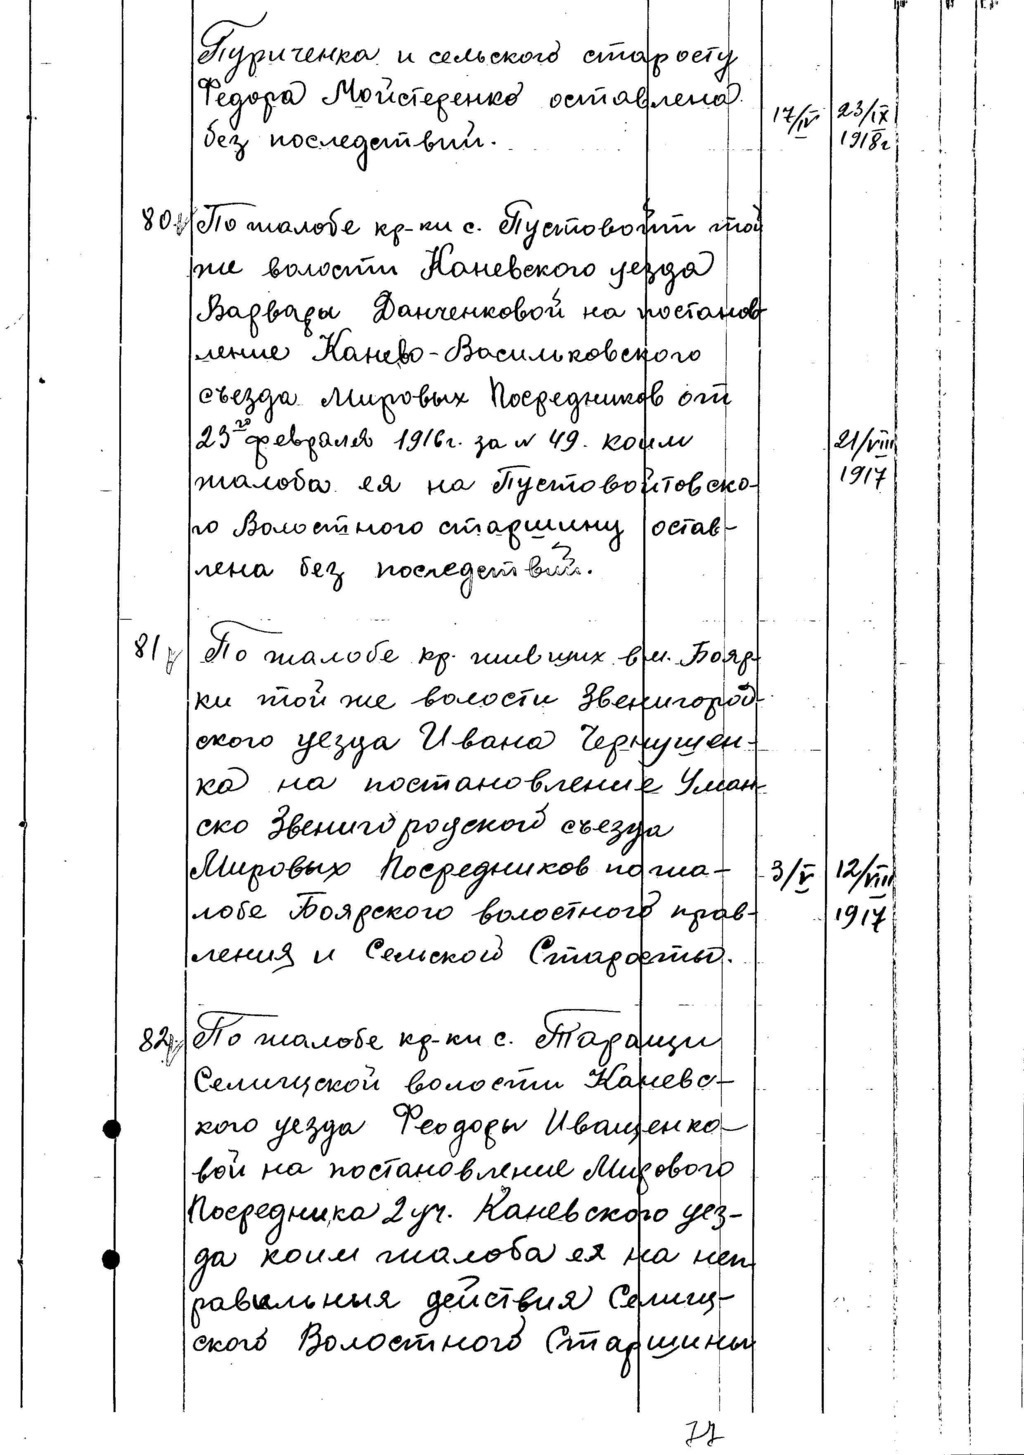 Гуриченка и сельского старосту
Федора Мойстеренко оставлена
без последствий. 17/IV 23/IX 1918г
80. По жалобе кр-ки с. Пустовойт той
же волости Каневского уезда
Варвары Данченковой на постанов
ление Канево-Васильковского
съезда Мировых Посредников от
23го февраля 1916г. за N 49. коим
жалоба ея на Пустовойтовско- 21/VIII 1917
го Волостного старшину остав-
лена без последствий.
81 По жалобе кр. живущих в м. Бояр-
ки той же волости Звенигород-
ского уезда Ивана Чернушен-
ка на постановление Уман-
ско Звенигородской съезда
Мировых Посредников по жа- 3/V 12/VIII
лобе Боярского волостного прав- 1917
ления и Сельской Старосты.
82 По жалобе кр-ки с. Таращи
Селищской волости Каневс-
кого уезда Феодоры Иващенко-
вой на постановление Мирового
Посредника 2 уч. Каневского уез-
да коим жалоба ея на неп
равильныя действия Селищ-
ского Волостного Старшины
77